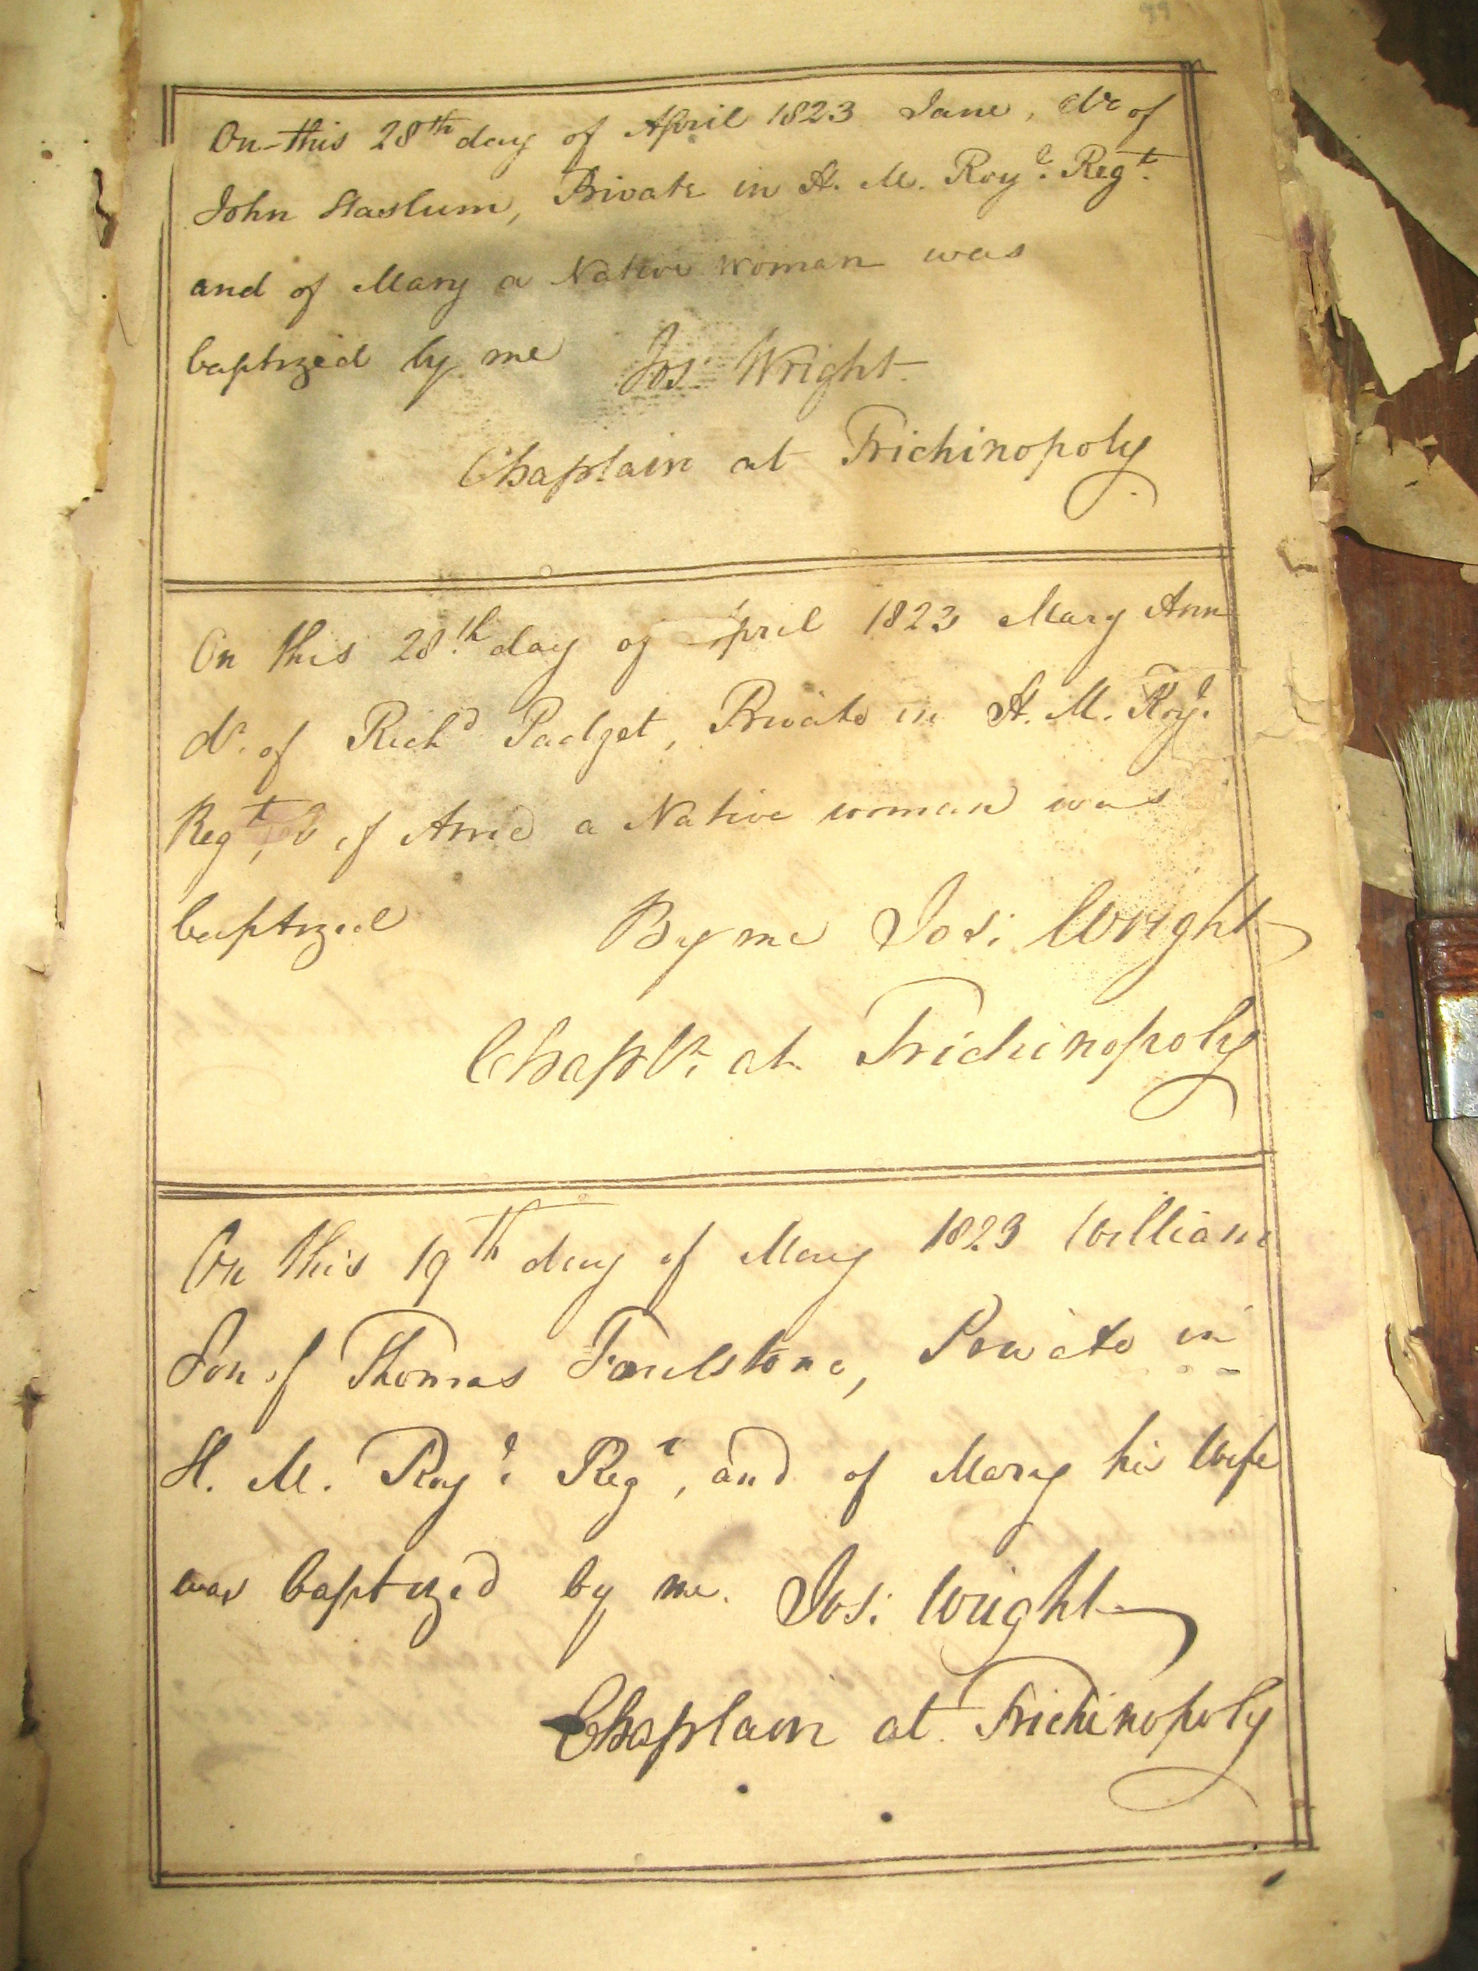 On this 28th day of April 1823 Jane, Dr of
John Haslum, Private in H. M. Royl. Regt.
and of Mary a Native woman was
baptized by me Jos: Wright
Chaplain at Trichinopoly
On this 28th day of April 1823 Mary Ann
Dr. of Richd Padget, Private in H. M. Royl.
Regt, & of a Native woman was
baptized By me Jos: Wright
Chapln. at Trichinopoly
On this 19th day of May 1823 William
Son of Thomas Private in
H. M. Royl. Regt, and of Mary his Wife
was baptized by me. Jos: Wright
Chaplain at Trichinopoly